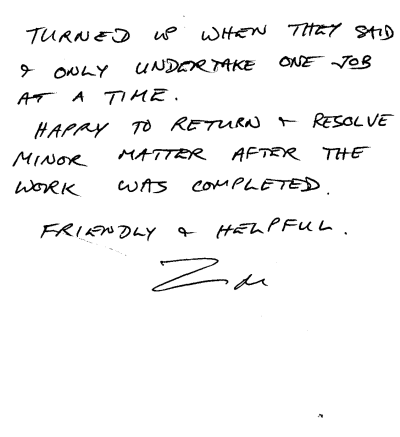 TURNED UP WHEN THEY SAID
& ONLY UNDERTAKE ONE JOB
AT A TIME.
HAPPY TO RETURN + RESOLVE
MINOR MATTER AFTER THE
WORK WAS COMPLETED.
FRIENDLY & HELPFUL.